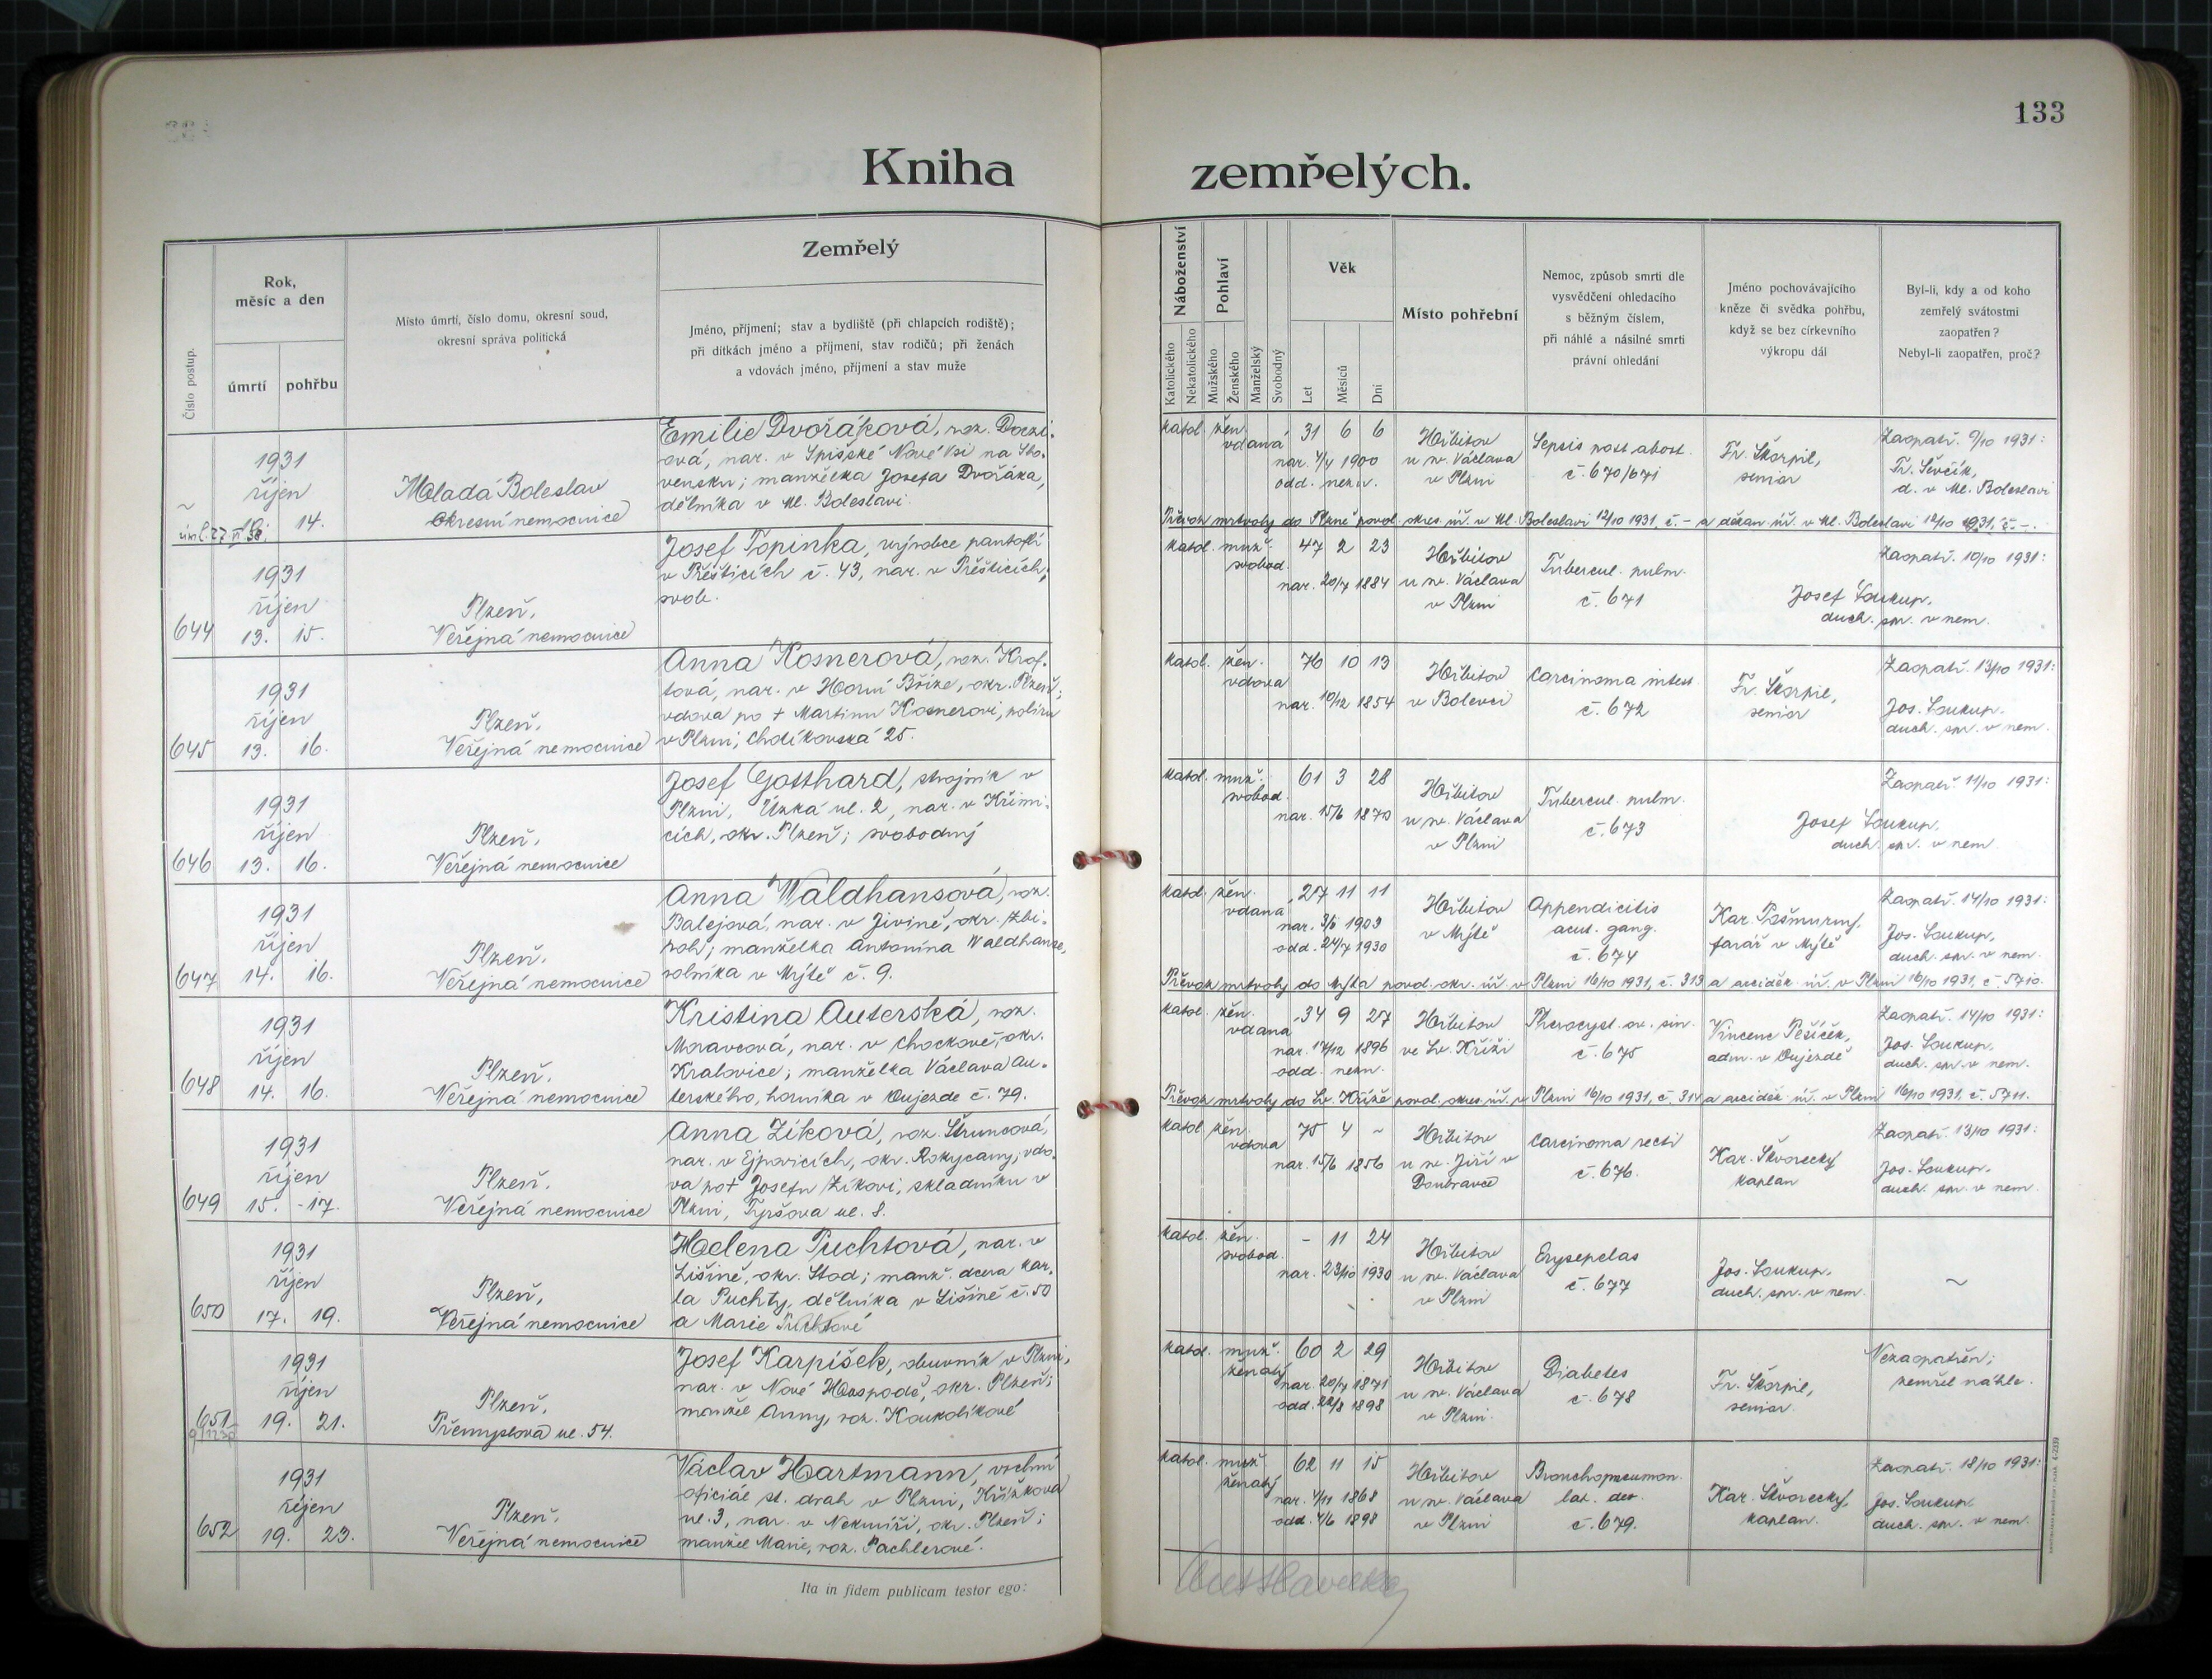 133
Kniha zemřelých.
Číslo postup.
Rok,
měsíc a den
úmrtí
pohřbu
Místo úmrtí, číslo domu, okresní soud,
okresní správa politická
Zemřelý
Jméno, příjmení; stav a bydliště (při chlapcích rodiště);
při dítkách jméno a příjmení, stav rodičů; při ženách
a vdovách jméno, příjmení a stav muže
Náboženství
Katolického
Nekatolického
Pohlaví
Mužského
Ženského
Manželský
Svobodný
Věk
Let
Měsíců
Dní
Místo pohřební
Nemoc, způsob smrti dle
vysvědčení ohledacího
s běžným číslem,
při náhlé a násilné smrti
právní ohledání
Jméno pochovávajícího
kněze či svědka pohřbu,
když se bez církevního
výkropu dál
Byl-li, kdy a od koho
zemřelý svátostmi
zaopatřen?
Nebyl-li zaopatřen, proč?
1931
říjen
14.
Mladá Boleslav
Okresní nemocnice
Emilie Dvořáková, roz.
ová, nar. v Spišské Nové Vsi na Slo-
vensku; manželka Josefa Dvořáka,
dělníka v Ml. Boleslavi.
katol. žen. vdaná 31 6 6
nar. 4/4 1900
odd. nezn.
Hřbitov
u sv. Václava
v Plzni
Sepsis post abort.
č. 670/671
Fr. Škorpil,
senior
Zaopatř. 9/10 1931:
Fr. Ševčík,
d. v Ml. Boleslavi
Převoz mrtvoly do Plzně povol. okres. úř. v Ml. Boleslavi 12/10 1931, č. – a děkan. úř. v Ml. Boleslavi 12/10 1931, č. –.
644
1931
říjen
13. 15.
Plzeň,
Veřejná nemocnice
Josef Topinka, výrobce pantoflí
v Přešticích č. 43, nar. v Přešticích;
svob.
katol. muž. svobod. 47 2 23
nar. 20/7 1884
Hřbitov
u sv. Václava
v Plzni
Tubercul. pulm.
č. 671
Zaopatř. 10/10 1931:
Josef Soukup,
duch. spr. v nem.
645
1931
říjen
13. 16.
Plzeň,
Veřejná nemocnice
Anna Kosnerová, roz. Krof-
tová, nar. v Horní Bříze, okr. Plzeň;
vdova po + Martinu Kosnerovi, políru
v Plzni, Chodíkovská 25.
katol. žen. vdova 76 10 13
nar. 10/12 1854
Hřbitov
v Bolevci
Carcinoma intest.
č. 672
Fr. Škorpil,
senior
Zaopatř. 13/10 1931:
Jos. Soukup,
duch. spr. v nem.
646
1931
říjen
13. 16.
Plzeň,
Veřejná nemocnice
Josef Gotthard, strojník v
Plzni, Úzká ul. 2, nar. v Křimi-
cích, okr. Plzeň; svobodný
katol. muž. svobod. 61 3 28
nar. 15/6 1870
Hřbitov
u sv. Václava
v Plzni
Tubercul. pulm.
č. 673
Zaopatř. 11/10 1931:
Josef Soukup,
duch. spr. v nem.
647
1931
říjen
14. 16.
Plzeň,
Veřejná nemocnice
Anna Waldhansová, roz.
Balejová, nar. v Jivině, okr. Zbi-
roh; manželka Antonína Waldhanse,
rolníka v Mýtě č. 9.
katol. žen. vdaná 27 11 11
nar. 3/11 1903
odd. 24/7 1930
Hřbitov
v Mýtě
Appendicitis
acut. gang.
č. 674
Kar. Pošmurný,
farář v Mýtě
Zaopatř. 14/10 1931:
Jos. Soukup,
duch. spr. v nem.
Převoz mrtvoly do Mýta povol. okr. úř. v Plzni 16/10 1931, č. 313 a arciděk. úř. v Plzni 16/10 1931, č. 5710.
648
1931
říjen
14. 16.
Plzeň,
Veřejná nemocnice
Kristina Auterská, roz.
Moravcová, nar. v Chockově, okr.
Kralovice; manželka Václava Au-
terského, horníka v Oujezde č. 79.
katol. žen. vdaná 34 9 27
nar. 17/12 1896
odd. nezn.
Hřbitov
ve Sv. Kříži
č. 675
Vincenc Pešíček,
adm. v Oujezdě
Zaopatř. 14/10 1931:
Jos. Soukup,
duch. spr. v nem.
Převoz mrtvoly do Sv. Kříže povol. okres. úř. v Plzni 16/10 1931, č. 314 a arciděk. úř. v Plzni 16/10 1931, č. 5711.
649
1931
říjen
15. 17.
Plzeň,
Veřejná nemocnice
Anna Zíková, roz. Štruncová,
nar. v Ejpovicích, okr. Rokycany; vdo-
va po + Josefu Zíkovi, skladníku v
Plzni, Tyršova ul. 8.
katol. žen. vdova 75 4 ~
nar. 15/6 1856
Hřbitov
u sv. Jiří v
Doubravce
Carcinoma recti
č. 676.
Kar. Škvorecký
kaplan
Zaopatř. 13/10 1931:
Jos. Soukup,
duch. spr. v nem.
650
1931
říjen
17. 19.
Plzeň,
Veřejná nemocnice
Helena Puchtová, nar. v
Lišině, okr. Stod; manž. dcera Kar-
la Puchty, dělníka v Lišině č. 50
a Marie Puchtové
katol. žen. svobod. – 11 24
nar. 23/10 1930
Hřbitov
u sv. Václava
v Plzni
Erysepelas
č. 677
Jos. Soukup,
duch. spr. v nem.
~
651
1931
říjen
19. 21.
Plzeň,
Přemyslova ul. 54.
Josef Karpíšek, obuvník v Plzni,
nar. v Nové Hospodě, okr. Plzeň;
manžel Anny, roz. Koukolíkové
katol. muž. ženatý 60 2 29
nar. 20/7 1871
odd. 22/8 1898
Hřbitov
u sv. Václava
v Plzni.
Diabetes
č. 678
Fr. Škorpil,
senior.
Nezaopatřen;
zemřel náhle.
652
1931
říjen
19. 23.
Plzeň,
Veřejná nemocnice
Václav Hartmann, vrchní
oficiál st. drah v Plzni, Křížkova
ul. 3, nar. v Nekmíři, okr. Plzeň;
manžel Marie, roz. Pachlerové.
katol. muž. ženatý 62 11 15
nar. 4/11 1868
odd. 4/6 1898
Hřbitov
u sv. Václava
v Plzni
Bronchopneumon.
č. 679.
Kar. Škvorecký,
kaplan.
Zaopatř. 18/10 1931:
Jos. Soukup
duch. spr. v nem.
Ita in fidem publicam testor ego: